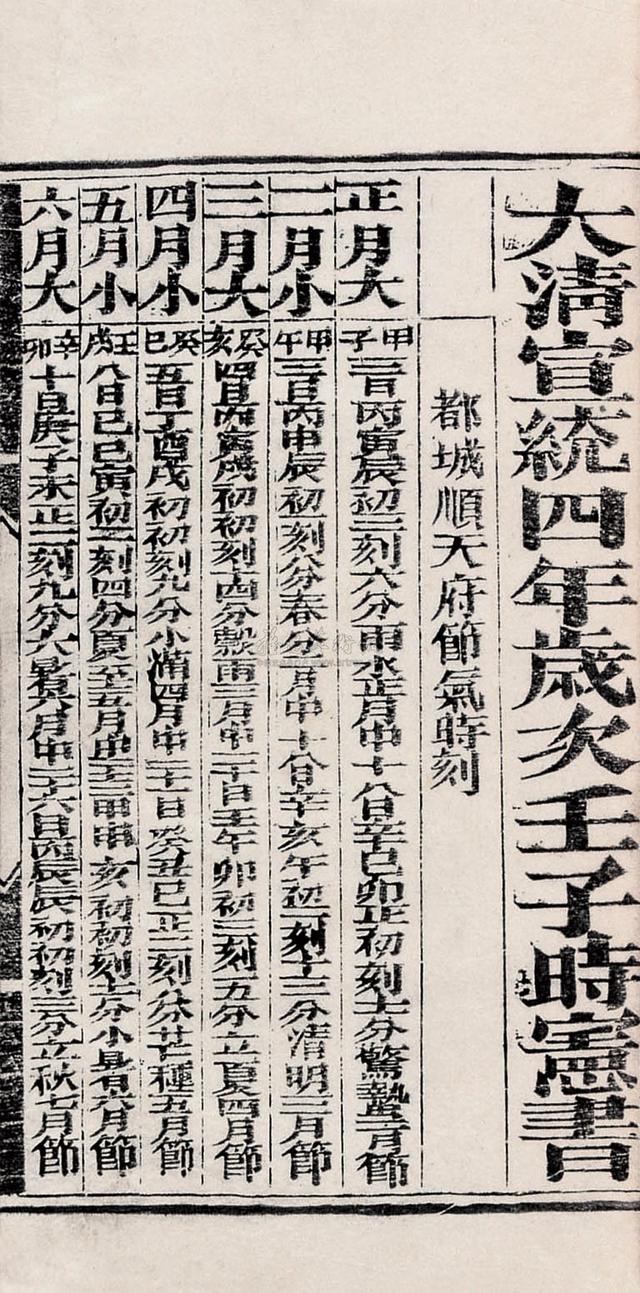 大清宣統四年歲次壬子時憲書
都城順天府節氣時刻
正月大 甲子 三日丙寅辰初二刻六分雨水正月中十八日辛巳卯正初刻七分驚蟄二月節
二月小 甲午 三日丙申辰初一刻八分春分二月中十八日辛亥午初二刻十三分清明三月節
三月大 癸亥 四日丙寅戌初初刻四分穀雨三月中二十日壬午卯初二刻五分立夏四月節
四月小 癸巳 五日丁酉戌初初刻九分小滿四月中二十一日癸丑巳正二刻八分芒種五月節
五月小 壬戌 八日己巳寅初二刻四分夏至五月中二十三日甲申亥初初刻十一分小暑六月節
六月大 辛卯 十日庚子未正二刻九分大暑六月中二十六日丙辰辰初初刻三分立秋七月節